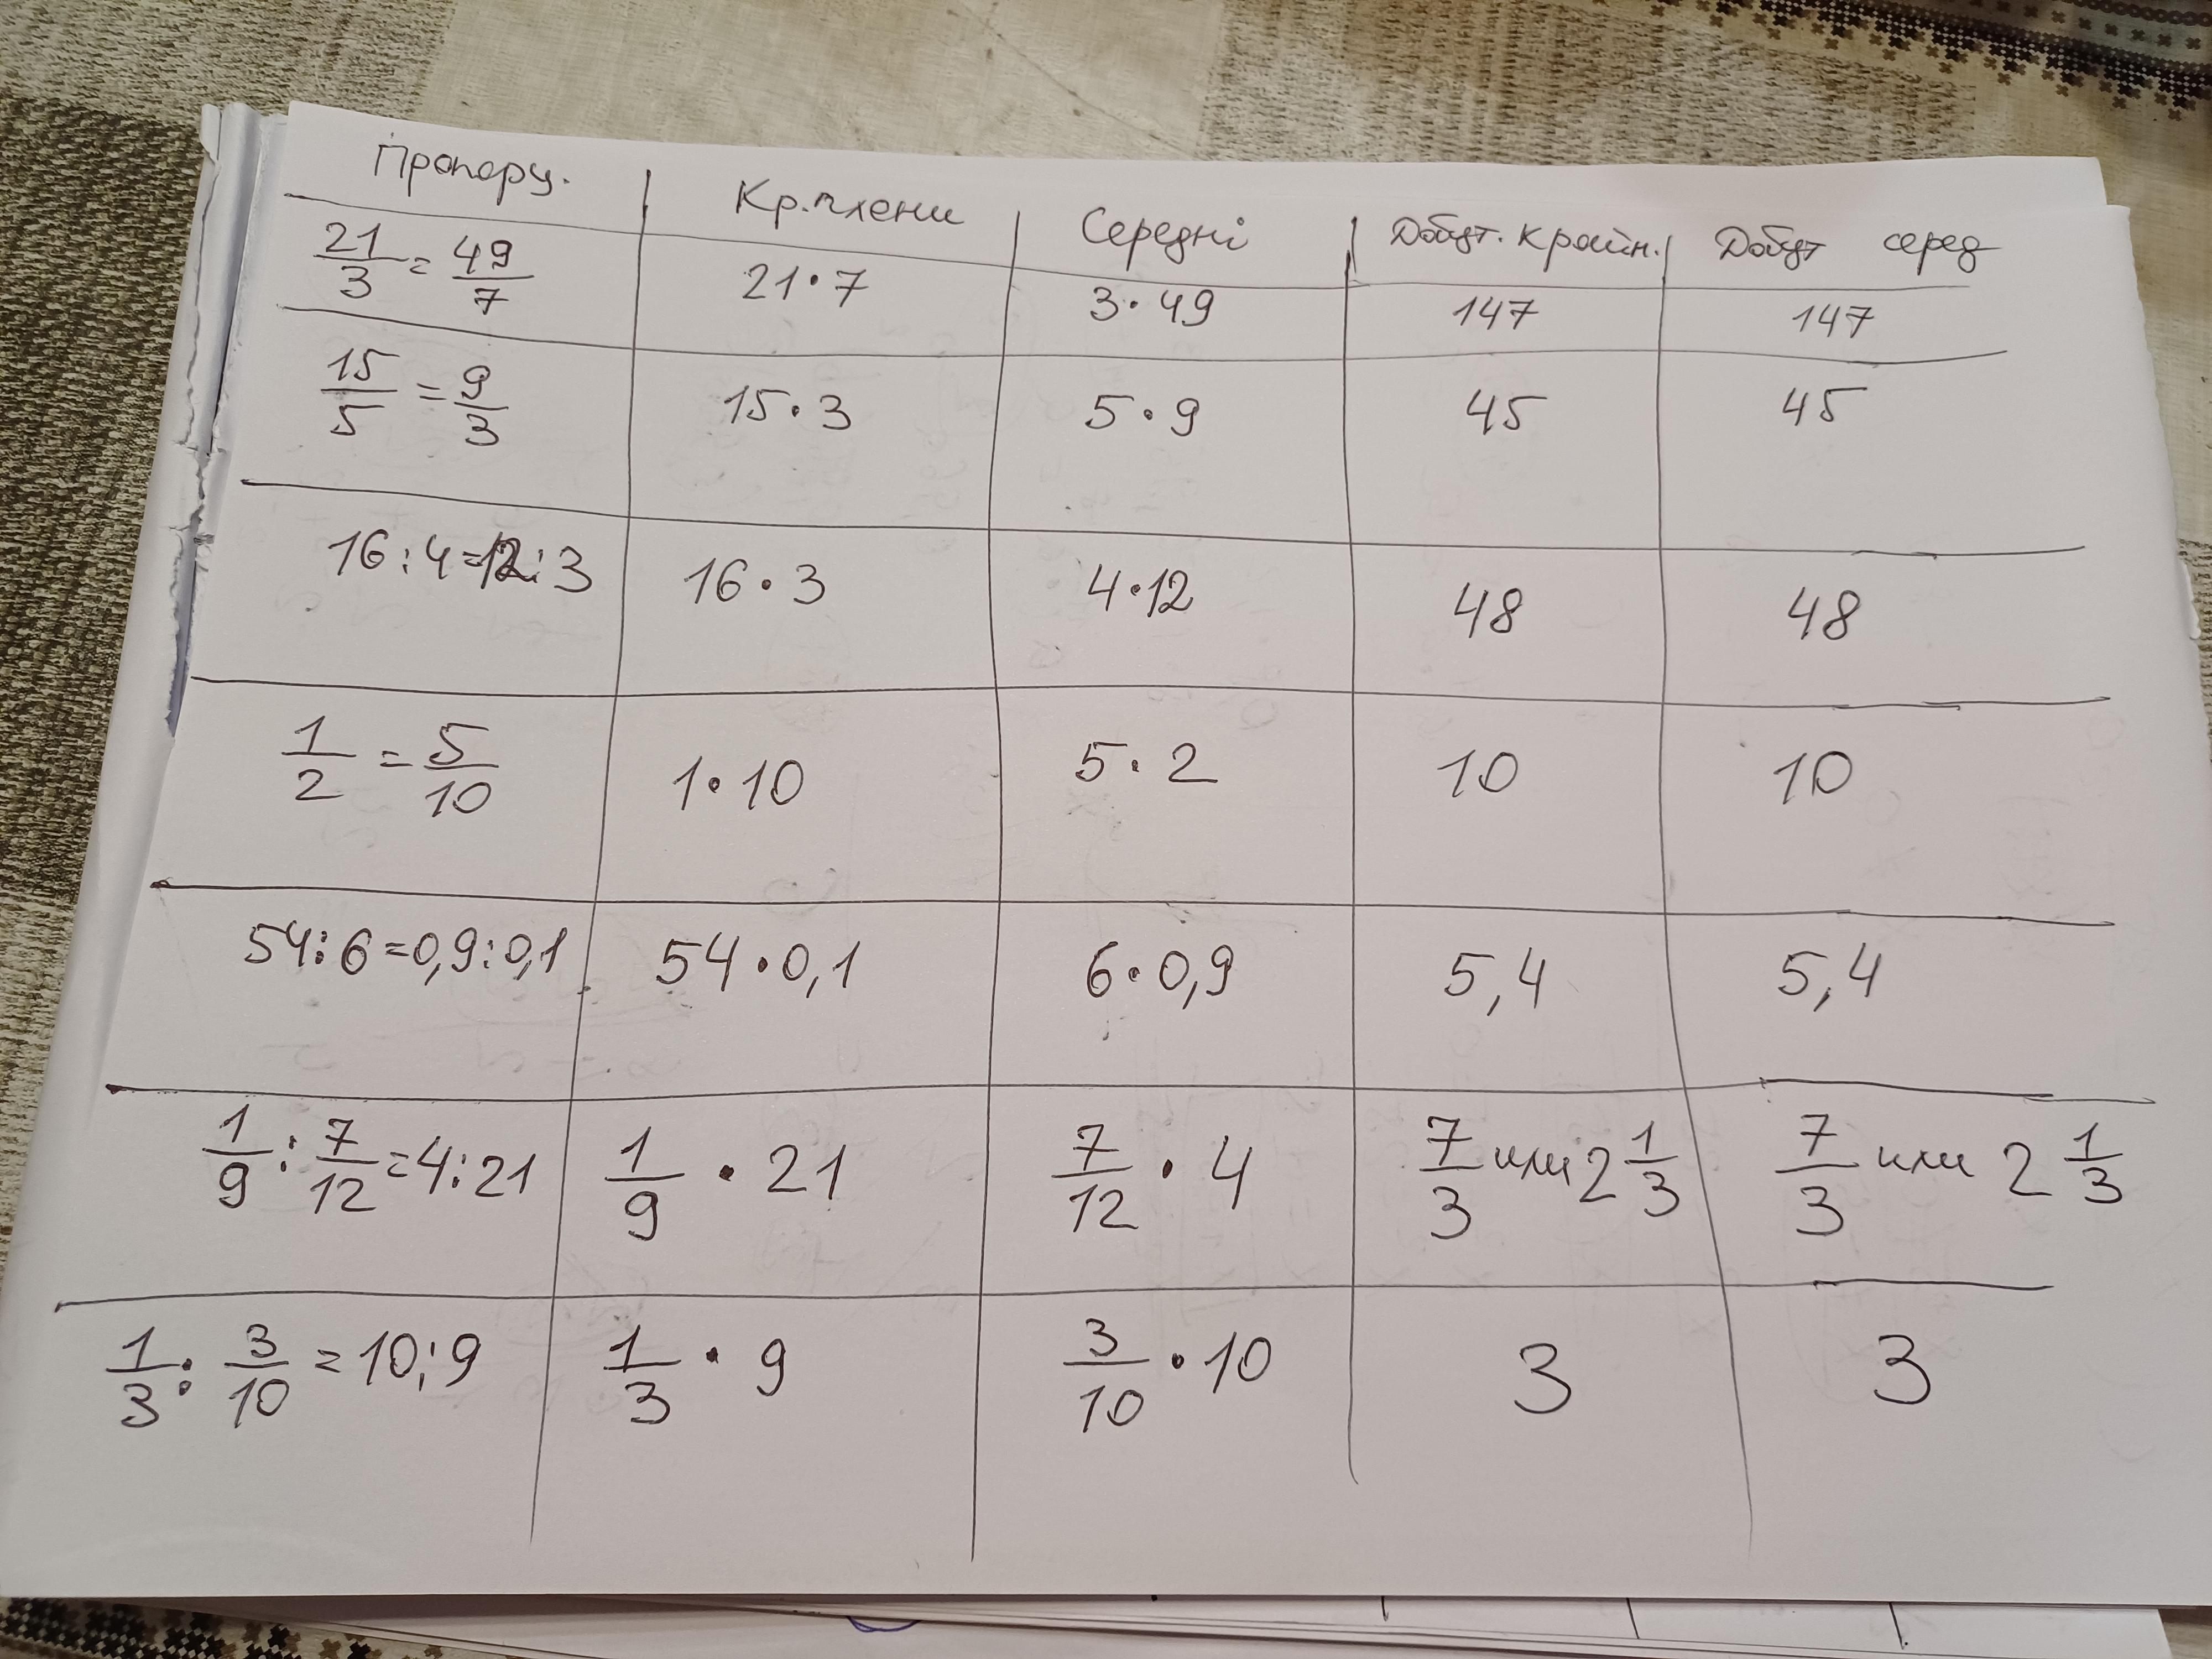 Пропорц. Кр. члени Середні Добут. крайн. Добут серед
21/3 = 49/7 21·7 3·49 147 147
15/5 = 9/3 15·3 5·9 45 45
16:4=12:3 16·3 4·12 48 48
1/2 = 5/10 1·10 5·2 10 10
54:6=0,9:0,1 54·0,1 6·0,9 5,4 5,4
1/9 : 7/12 = 4:21 1/9 · 21 7/12 · 4 7/3 или 2 1/3 7/3 или 2 1/3
1/3 : 3/10 = 10:9 1/3 · 9 3/10 · 10 3 3